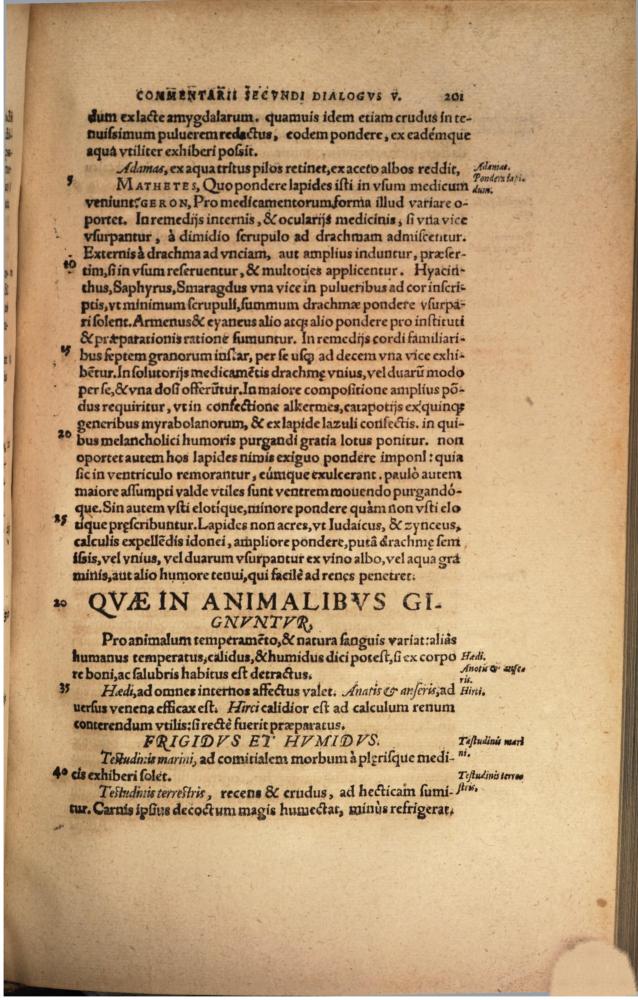 COMMENTARII SECVNDI DIALOGVS V. 201
dum ex lacte amygdalarum. quamuis idem etiam crudus in te-
nuissimum puluerem redactus, eodem pondere, ex eadémque
aqua vtiliter exhiberi possit.
Adamas, ex aqua tritus pilos retinet, ex aceto albos reddit, Adamas.
5 MATHETES, Quo pondere lapides isti in vsum medicum Pondera lapi-
veniunt? GERON, Pro medicamentorum forma illud variare o- dum.
portet. In remedijs internis, & ocularijs medicinis, si vna vice
vsurpantur, à dimidio scrupulo ad drachmam admiscentur.
Externis à drachma ad vnciam, aut amplius induntur, præser-
10 tim, si in vsum reseruentur, & multoties applicentur. Hyacin-
thus, Saphyrus, Smaragdus vna vice in pulueribus ad cor inscri-
ptis, vt minimum scrupuli, summum drachmæ pondere vsurpa-
ri solent. Armenus & cyaneus alio atq; alio pondere pro instituti
& præparationis ratione sumuntur. In remedijs cordi familiari-
15 bus septem granorum instar, per se usq; ad decem vna vice exhi-
bẽtur. In solutorijs medicamẽtis drachmę vnius, vel duarũ modo
per se, & vna dosi offerũtur. In maiore compositione amplius põ-
dus requiritur, vt in confectione alkermes, catapotijs ex quinq;
generibus myrabolanorum, & ex lapide lazuli confectis. in qui-
20 bus melancholici humoris purgandi gratia lotus ponitur. non
oportet autem hos lapides nimis exiguo pondere imponi: quia
sic in ventriculo remorantur, eúmque exulcerant. paulò autem
maiore assumpti valde vtiles sunt ventrem mouendo purgandó-
que. Sin autem vsti elotique, minore pondere quàm non vsti elo
25 tique pręscribuntur. Lapides non acres, vt Iudaicus, & zynceus,
calculis expellẽdis idonei, ampliore pondere, putà drachmę semi
issis, vel vnius, vel duarum vsurpantur ex vino albo, vel aqua grá
minis, aut alio humore tenui, qui facilè ad renes penetret.
20 QVÆ IN ANIMALIBVS GI-
GNVNTVR,
Pro animalum temperamẽto, & natura sanguis variat: aliàs
humanus temperatus, calidus, & humidus dici potest, si ex corpo Hædi.
re boni, ac salubris habitus est detractus. Anatis & anse-
ris.
35 Hædi, ad omnes internos affectus valet. Anatis & anseris, ad Hirci.
uersus venena efficax est. Hirci calidior est ad calculum renum
conterendum vtilis: si rectè fuerit præparatus.
FRIGIDVS ET HVMIDVS. Testudinis mari
Testudinis marini, ad comitialem morbum à plęrisque medi- ni.
40 cis exhiberi solet. Testudinis terres
Testudinis terrestris, recens & crudus, ad hecticam sumi- stris.
tur. Carnis ipsius decoctum magis humectat, minùs refrigerat.